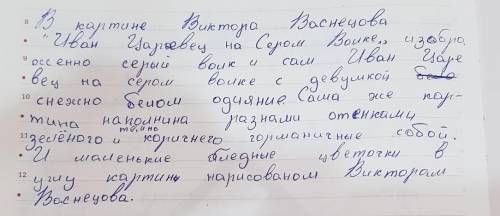 8 В картине Виктора Воснецова
"Иван Царевец на Сером Волке„ изобра
9 оссенно серый волк и сам Иван Царе
вец на сером волке с девумкой
10 снежно белом одияние. Сама же кар-
тина напомнина разнами отенками
11 зелёного и тёмно коричнего горманичные собой.
И маленькие бледные цветочки в
12 углу картины нарисованом Викторам
Воснецова.